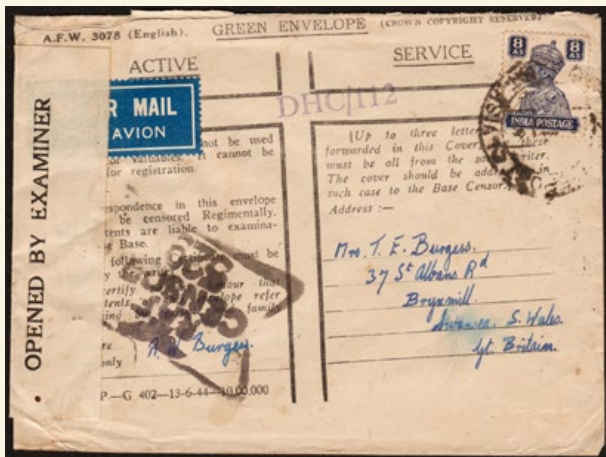 A.F.W. 3078 (English). GREEN ENVELOPE (CROWN COPYRIGHT RESERVED)
ACTIVE
SERVICE
8 AS 8 AS
INDIA POSTAGE
R MAIL
AVION
DHC/112
OPENED BY EXAMINER
not be used
or valuables. It cannot be
for registration.
espondence in this envelope
be censored Regimentally.
tents are liable to examina-
e Base.
following certificate must be
y the writer
ertify our that
tents envelope refer
ing family
re
only
A. W. Burgess.
P—G 402—13-6-44—10,00,000
[Up to three letter
forwarded in this Cover these
must be all from the sa riter.
The cover should be addre in
such case to the Base Censor.
Address :—
Mrs. T. E. Burgess.
37 St Albans Rd
Brynmill.
Swansea. S. Wales.
Gt. Britain.